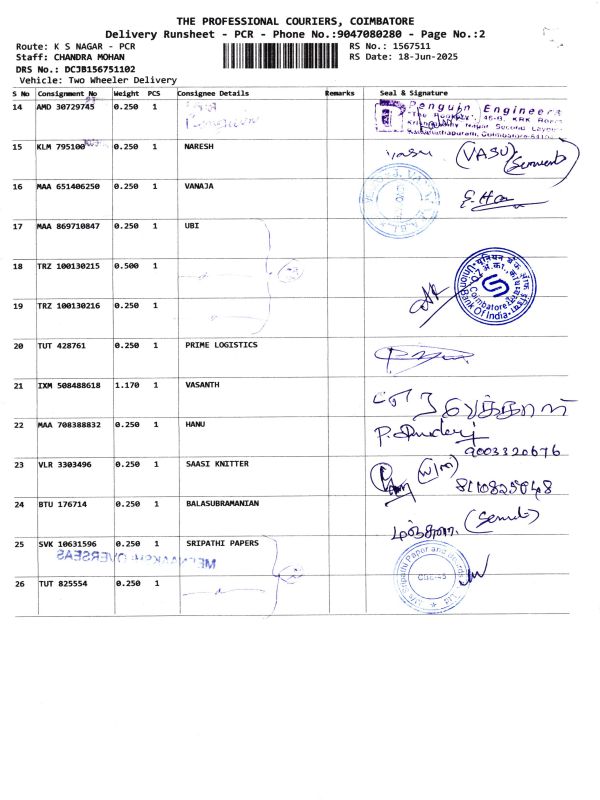 THE PROFESSIONAL COURIERS, COIMBATORE
Delivery Runsheet - PCR - Phone No.:9047080280 - Page No.:2
Route: K S NAGAR - PCR RS No.: 1567511
Staff: CHANDRA MOHAN RS Date: 18-Jun-2025
DRS No.: DCJB156751102
Vehicle: Two Wheeler Delivery
S No Consignment No Weight PCS Consignee Details Remarks Seal & Signature
14 AMD 30729745 0.250 1 Penguin Engineers
15 KLM 795100 0.250 1 NARESH (VASU)
16 MAA 651406250 0.250 1 VANAJA
17 MAA 869710847 0.250 1 UBI
18 TRZ 100130215 0.500 1 Union Bank Of India Coimbatore
19 TRZ 100130216 0.250 1
20 TUT 428761 0.250 1 PRIME LOGISTICS
21 IXM 508488618 1.170 1 VASANTH
22 MAA 708388832 0.250 1 HANU
9003320676
23 VLR 3303496 0.250 1 SAASI KNITTER
24 BTU 176714 0.250 1 BALASUBRAMANIAN
25 SVK 10631596 0.250 1 SRIPATHI PAPERS
MEENAAKSHI OVERSEAS
26 TUT 825554 0.250 1